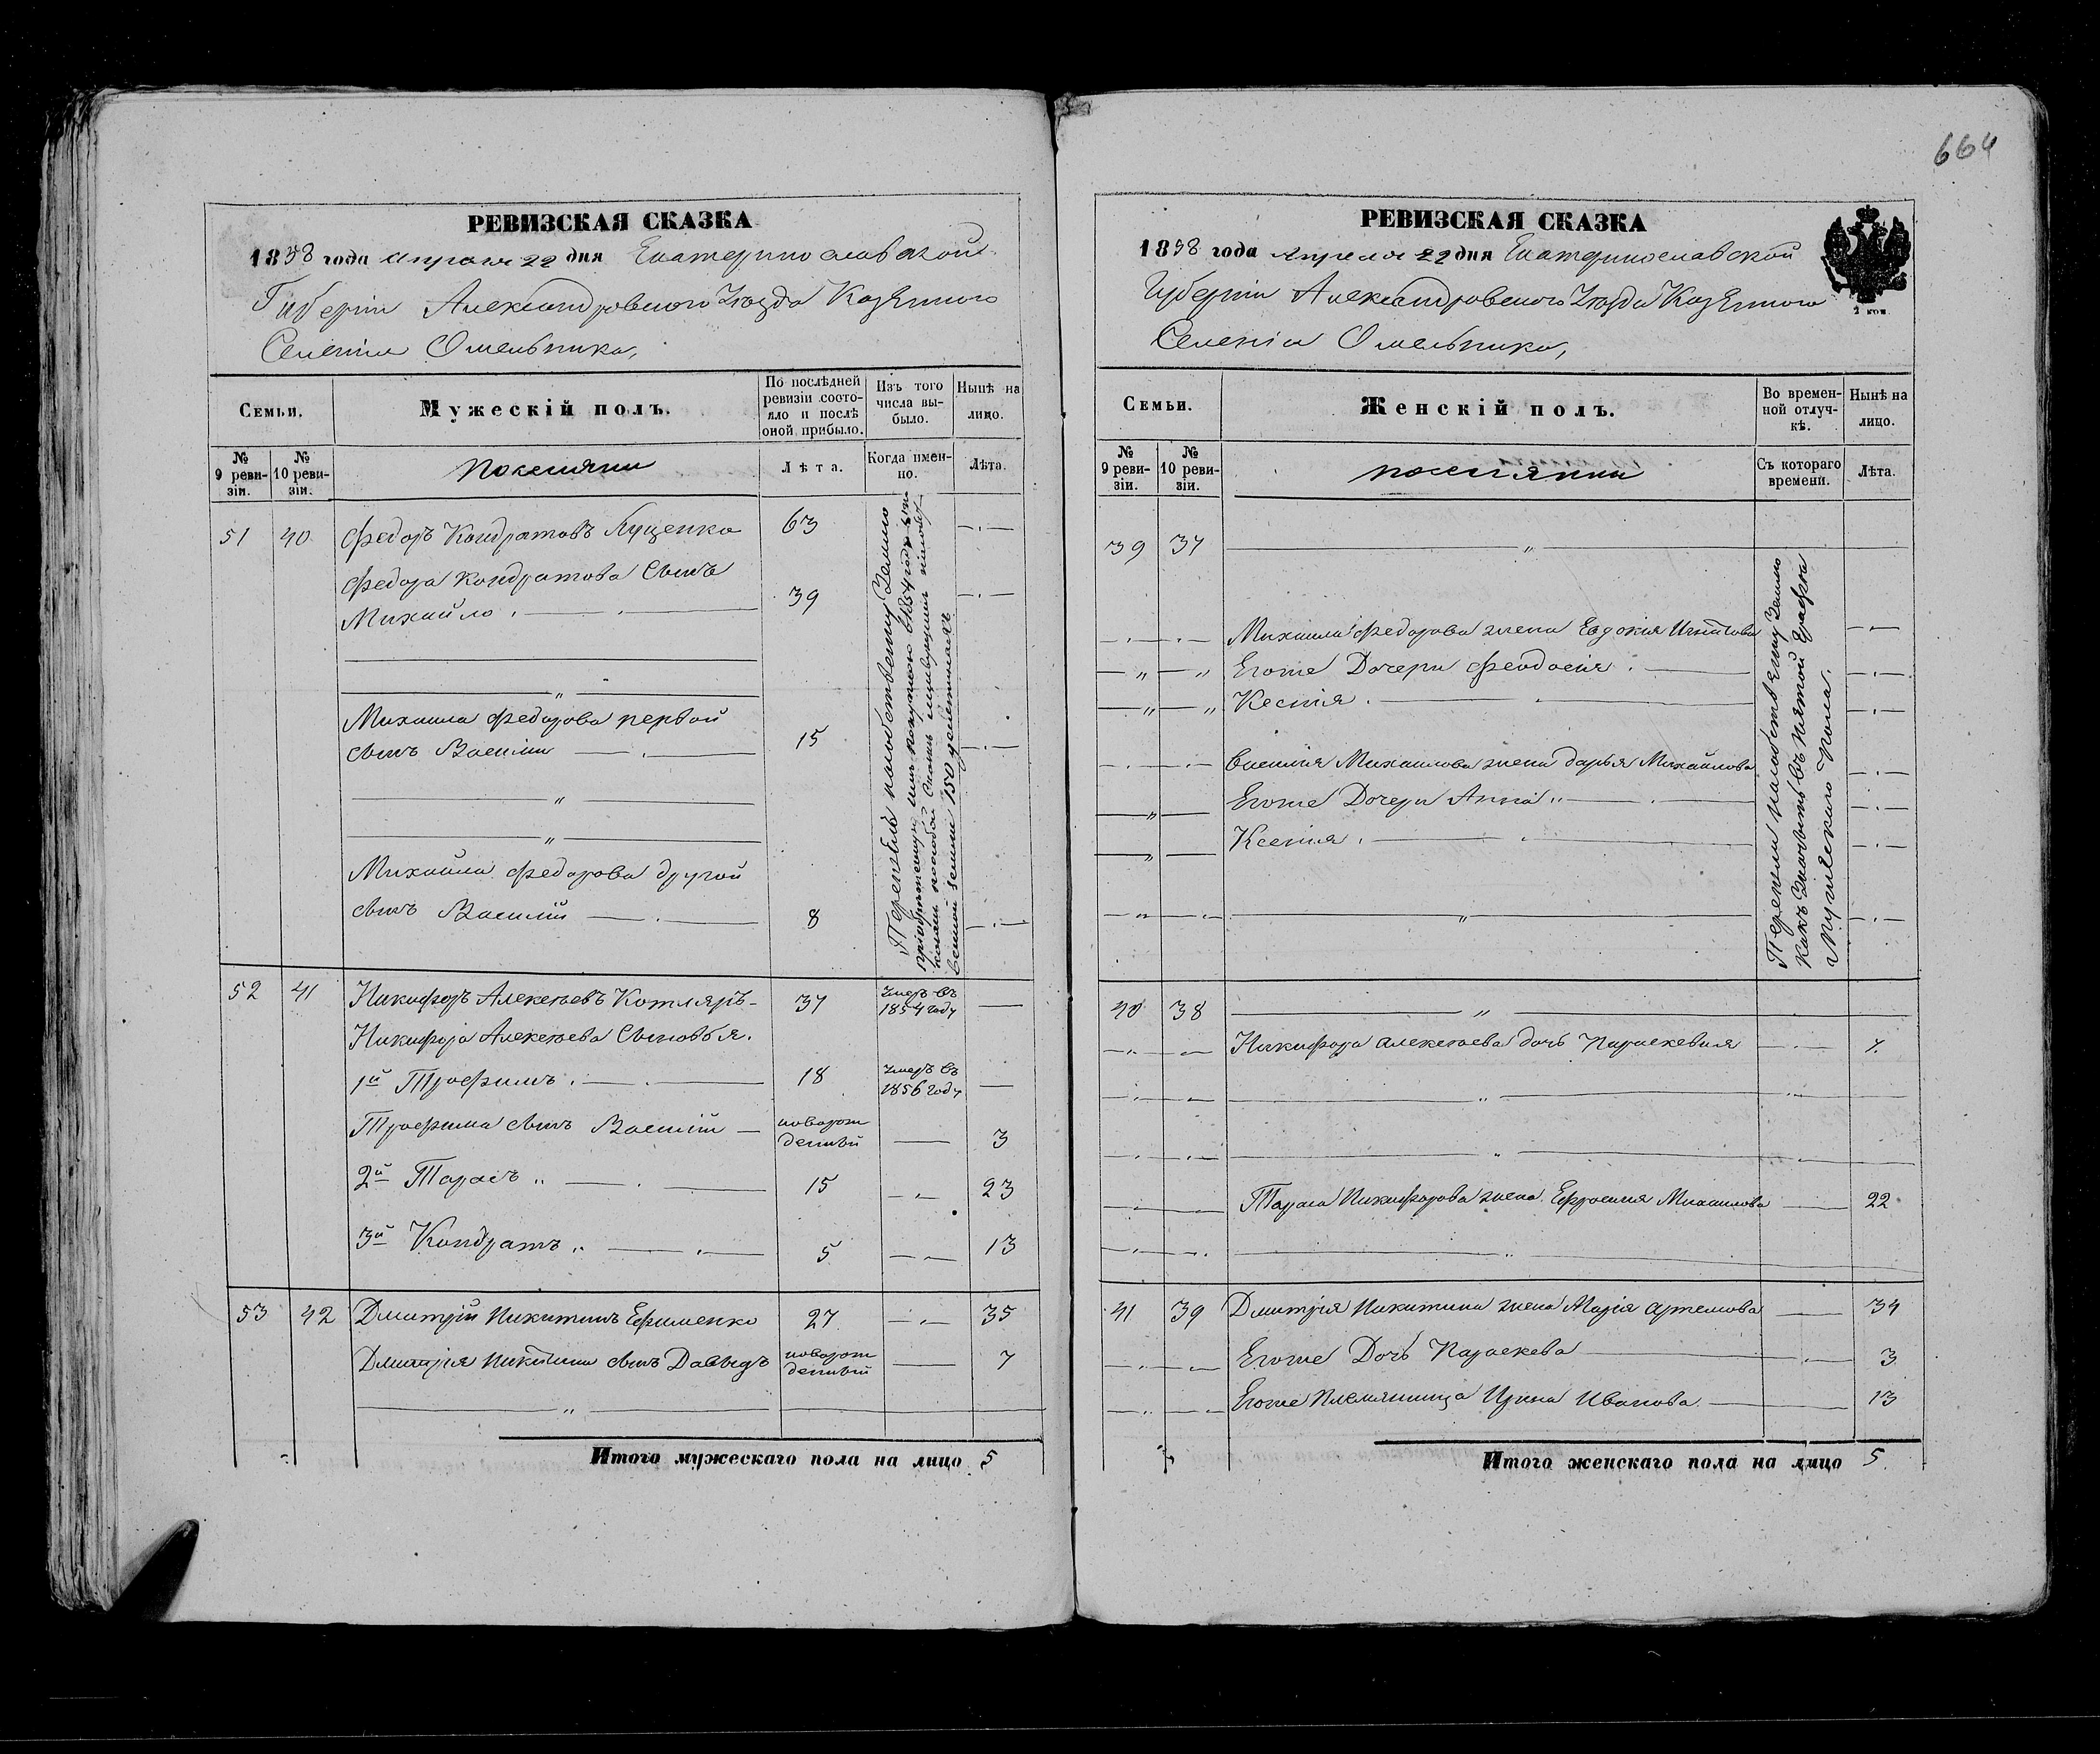 664
РЕВИЗСКАЯ СКАЗКА
1858 года апреля 22 дня Екатеринославской
Губерніи Александровского Уѣзда Казенного
Селенія Омельника,
Семьи.
Мужескій полъ.
По послѣдней ревизіи состояло и послѣ оной прибыло.
Изъ того числа выбыло.
Нынѣ на лицо.
№ 9 ревизіи.
№ 10 ревизіи.
поселяни
Лѣта.
Когда именно.
Лѣта.
51 40 Федоръ Кондратовъ Луценко 63
Федора Кондратова Сынъ
Михайло 39
Михаила Федорова первой
сынъ Василій 15
Михаила Федорова другой
сынъ Василій 8
52 41 Никифоръ Алексѣевъ Котляръ 37 Умеръ въ 1854 году
Никифора Алексѣева Сыновья.
1й Трофимъ 18 Умеръ въ 1856 году
Трофима сынъ Василій новорожденный 3
2й Тарасъ 15 23
3й Кондратъ 5 13
53 42 Дмитрій Никитинъ Ефименко 27 35
Дмитрія Никитина сынъ Давыдъ новорожденный 7
Итого мужескаго пола на лицо 5
РЕВИЗСКАЯ СКАЗКА
1858 года апреля 22 дня Екатеринославской
Губерніи Александровского Уѣзда Казенного
Селенія Омельника,
Семьи.
Женскій полъ.
Во временной отлучкѣ.
Нынѣ на лицо.
№ 9 ревизіи.
№ 10 ревизіи.
поселянки
Съ котораго времени.
Лѣта.
39 37
Михаила Федорова жена Евдокія Игнатова
Егоже Дочери Феодосія
Ксенія
Василія Михаилова жена Дарья Михайлова
Егоже Дочери Анна
Ксенія
мужеского пола.
40 38
Никифора Алексѣева дочь Параскевия 7
Тараса Никифорова жена Ефросинія Михаилова 22
41 39 Дмитрія Никитина жена Марія Артемова 34
Егоже Дочь Параскева 3
Егоже Племянница Ирина Иванова 13
Итого женскаго пола на лицо 5